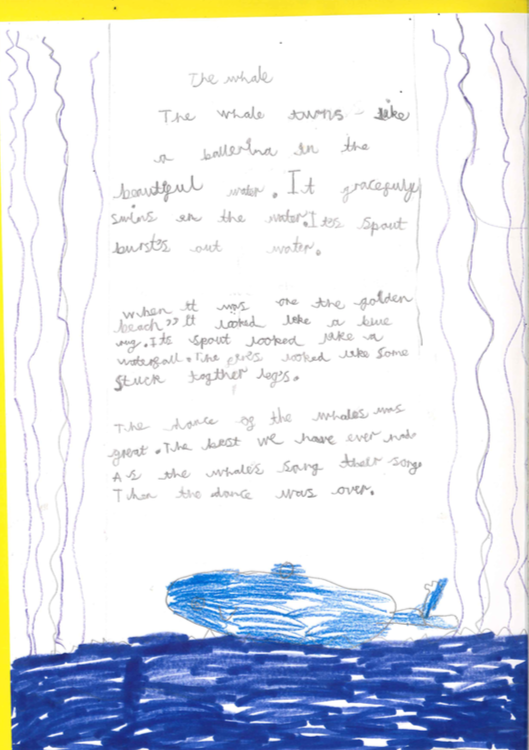 The whale
The whale turns like
a ballerina in the
beautyful water. It gracefuly
swims en the water. Its spout
bursts out water.
When it was one the golden
beach it looked like a blue
rug. Its spout looked like a
waterfall. The looked like some
stuck together legs.
The dance of the whales was
great. The best we have ever had
As the whales sang their songs
Then the dance was over.